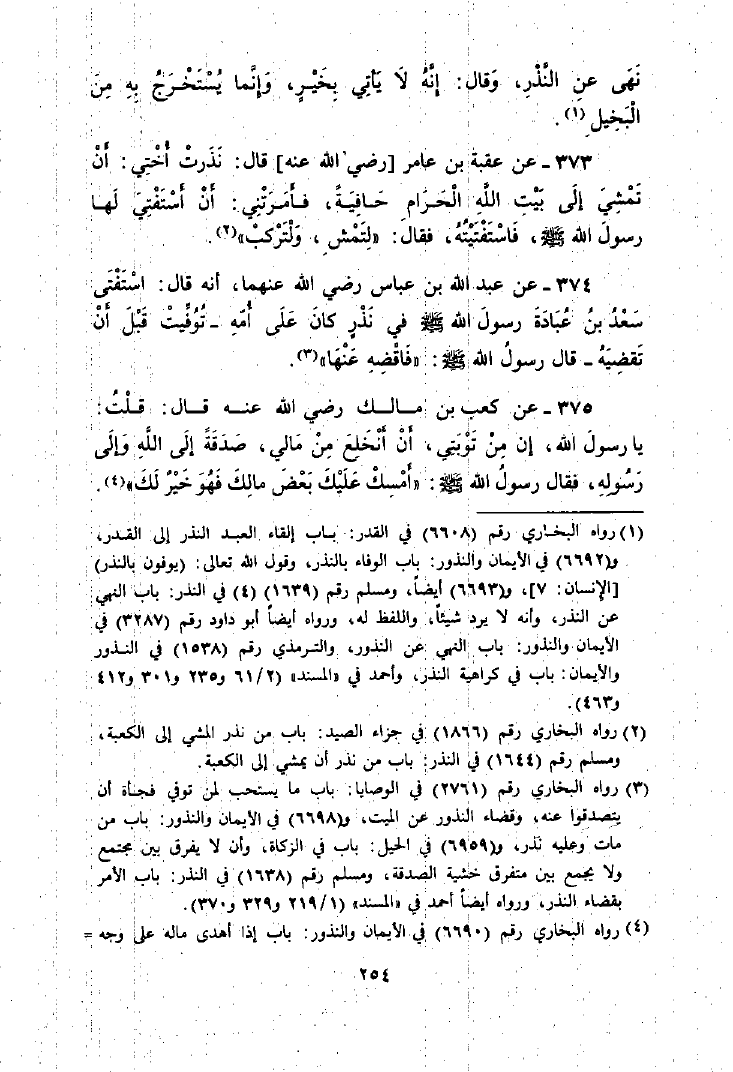 نَهَى عنِ النَّذْرِ، وَقال: إِنَّهُ لَا يَأتِي بِخَيْرٍ، وَإنَّما يُسْتَخْرَجُ بِهِ مِنَ
الْبَخِيلِ(١).
٣٧٣ ـ عن عقبة بن عامر [رضي الله عنه] قال: نَذَرتْ أُخْتِي: أَنْ
تَمْشِيَ إلَى بَيْتِ اللَّهِ الْحَرَامِ حَافِيَةً، فَأمَرَتْنِي: أَنْ أَسْتَفْتِيَ لَها
رسولَ الله ﷺ، فَاسْتَفْتَيْتُهُ، فقال: «لِتَمْشِ، وَلْتَركبْ»(٢).
٣٧٤ ـ عن عبد الله بن عباس رضي الله عنهما، أنه قال: اسْتَفْتَى
سَعْدُ بنُ عُبَادَةَ رسولَ الله ﷺ في نَذْرٍ كانَ عَلَى أُمِّهِ ـ تُوُفِّيتْ قَبْلَ أنْ
تَقضِيَهُ ـ قال رسولُ الله ﷺ: «فَاقْضِهِ عَنْهَا»(٣).
٣٧٥ ـ عن كعب بن مالك رضي الله عنه قال: قلْتُ:
يا رسولَ الله، إن مِنْ تَوْبَتِي، أَنْ أَنْخَلِعَ مِنْ مَالي، صَدَقَةً إلَى اللَّهِ وَإلى
رَسُولِهِ، فقال رسولُ الله ﷺ: «أَمْسِكْ عَلَيْكَ بَعْضَ مالِكَ فَهُوَ خَيْرٌ لَكَ»(٤).
(١) رواه البخاري رقم (٦٦٠٨) في القدر: باب إلقاء العبد النذر إلى القدر،
و(٦٦٩٢) في الأيمان والنذور: باب الوفاء بالنذر، وقول الله تعالى: (يوفون بالنذر)
[الإنسان: ٧]، و(٦٦٩٣) أيضاً، ومسلم رقم (١٦٣٩) (٤) في النذر: باب النهي
عن النذر، وأنه لا يرد شيئاً، واللفظ له، ورواه أيضاً أبو داود رقم (٣٢٨٧) في
الأيمان والنذور: باب النهي عن النذور، والترمذي رقم (١٥٣٨) في النذور
والأيمان: باب في كراهية النذر، وأحمد في «المسند» (٢/ ٦١ و٢٣٥ و٣٠١ و٤١٢
و٤٦٣).
(٢) رواه البخاري رقم (١٨٦٦) في جزاء الصيد: باب من نذر المشي إلى الكعبة،
ومسلم رقم (١٦٤٤) في النذر: باب من نذر أن يمشي إلى الكعبة.
(٣) رواه البخاري رقم (٢٧٦١) في الوصايا: باب ما يستحب لمن توفي فجأة أن
يتصدقوا عنه، وقضاء النذور عن الميت، و(٦٦٩٨) في الأيمان والنذور: باب من
مات وعليه نذر، و(٦٩٥٩) في الحيل: باب في الزكاة، وأن لا يفرق بين مجتمع
ولا يجمع بين متفرق خشية الصدقة، ومسلم رقم (١٦٣٨) في النذر: باب الأمر
بقضاء النذر، ورواه أيضاً أحمد في «المسند» (١/ ٢١٩ و٣٢٩ و٣٧٠).
(٤) رواه البخاري رقم (٦٦٩٠) في الأيمان والنذور: باب إذا أهدى ماله على وجه =
٢٥٤